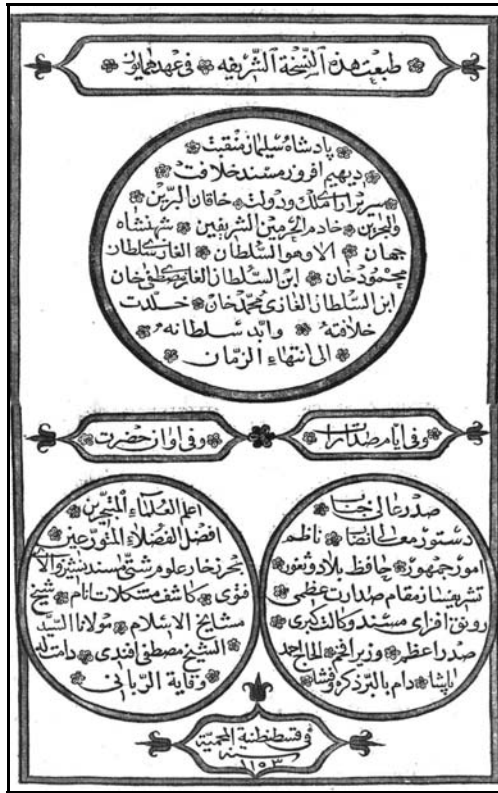 طبعت هذه النسخة الشريفه في عهد همايون
پادشاه سليمان منقبت
ديهيم افروز مسند خلافت
سرير آراى ملك و دولت خاقان البرين
والبحرين خادم الحرمين الشريفين شهنشاه
جهان الا وهو السلطان الغازى سلطان
محمود خان ابن السلطان الغازى مصطفى خان
ابن السلطان الغازى محمد خان خلدت
خلافته وابد سلطانه
الى انتهاء الزمان
وفى ايام صدارت
صدر عالى جناب
دستور معالى انصاب ناظم
امور جمهور حافظ بلاد وثغور
تشريفساز مقام صدارت عظمى
رونق افزاى مسند وكالت كبرى
صدر اعظم وزير افخم الحاج احمد
پاشا دام بالبر ذكره وفشا
وفى اوان حضرت
اعلم العلماء المتبحرين
افضل الفضلاء المتورعين
بحر زخار علوم شتى مسند نشين والا
فتوى كاشف مشكلات انام شيخ
مشايخ الاسلام مولانا السيد
الشيخ مصطفى افندى دامت له
وقاية الربانى
فى قسطنطنية المحمية
سنه
١١٥٣